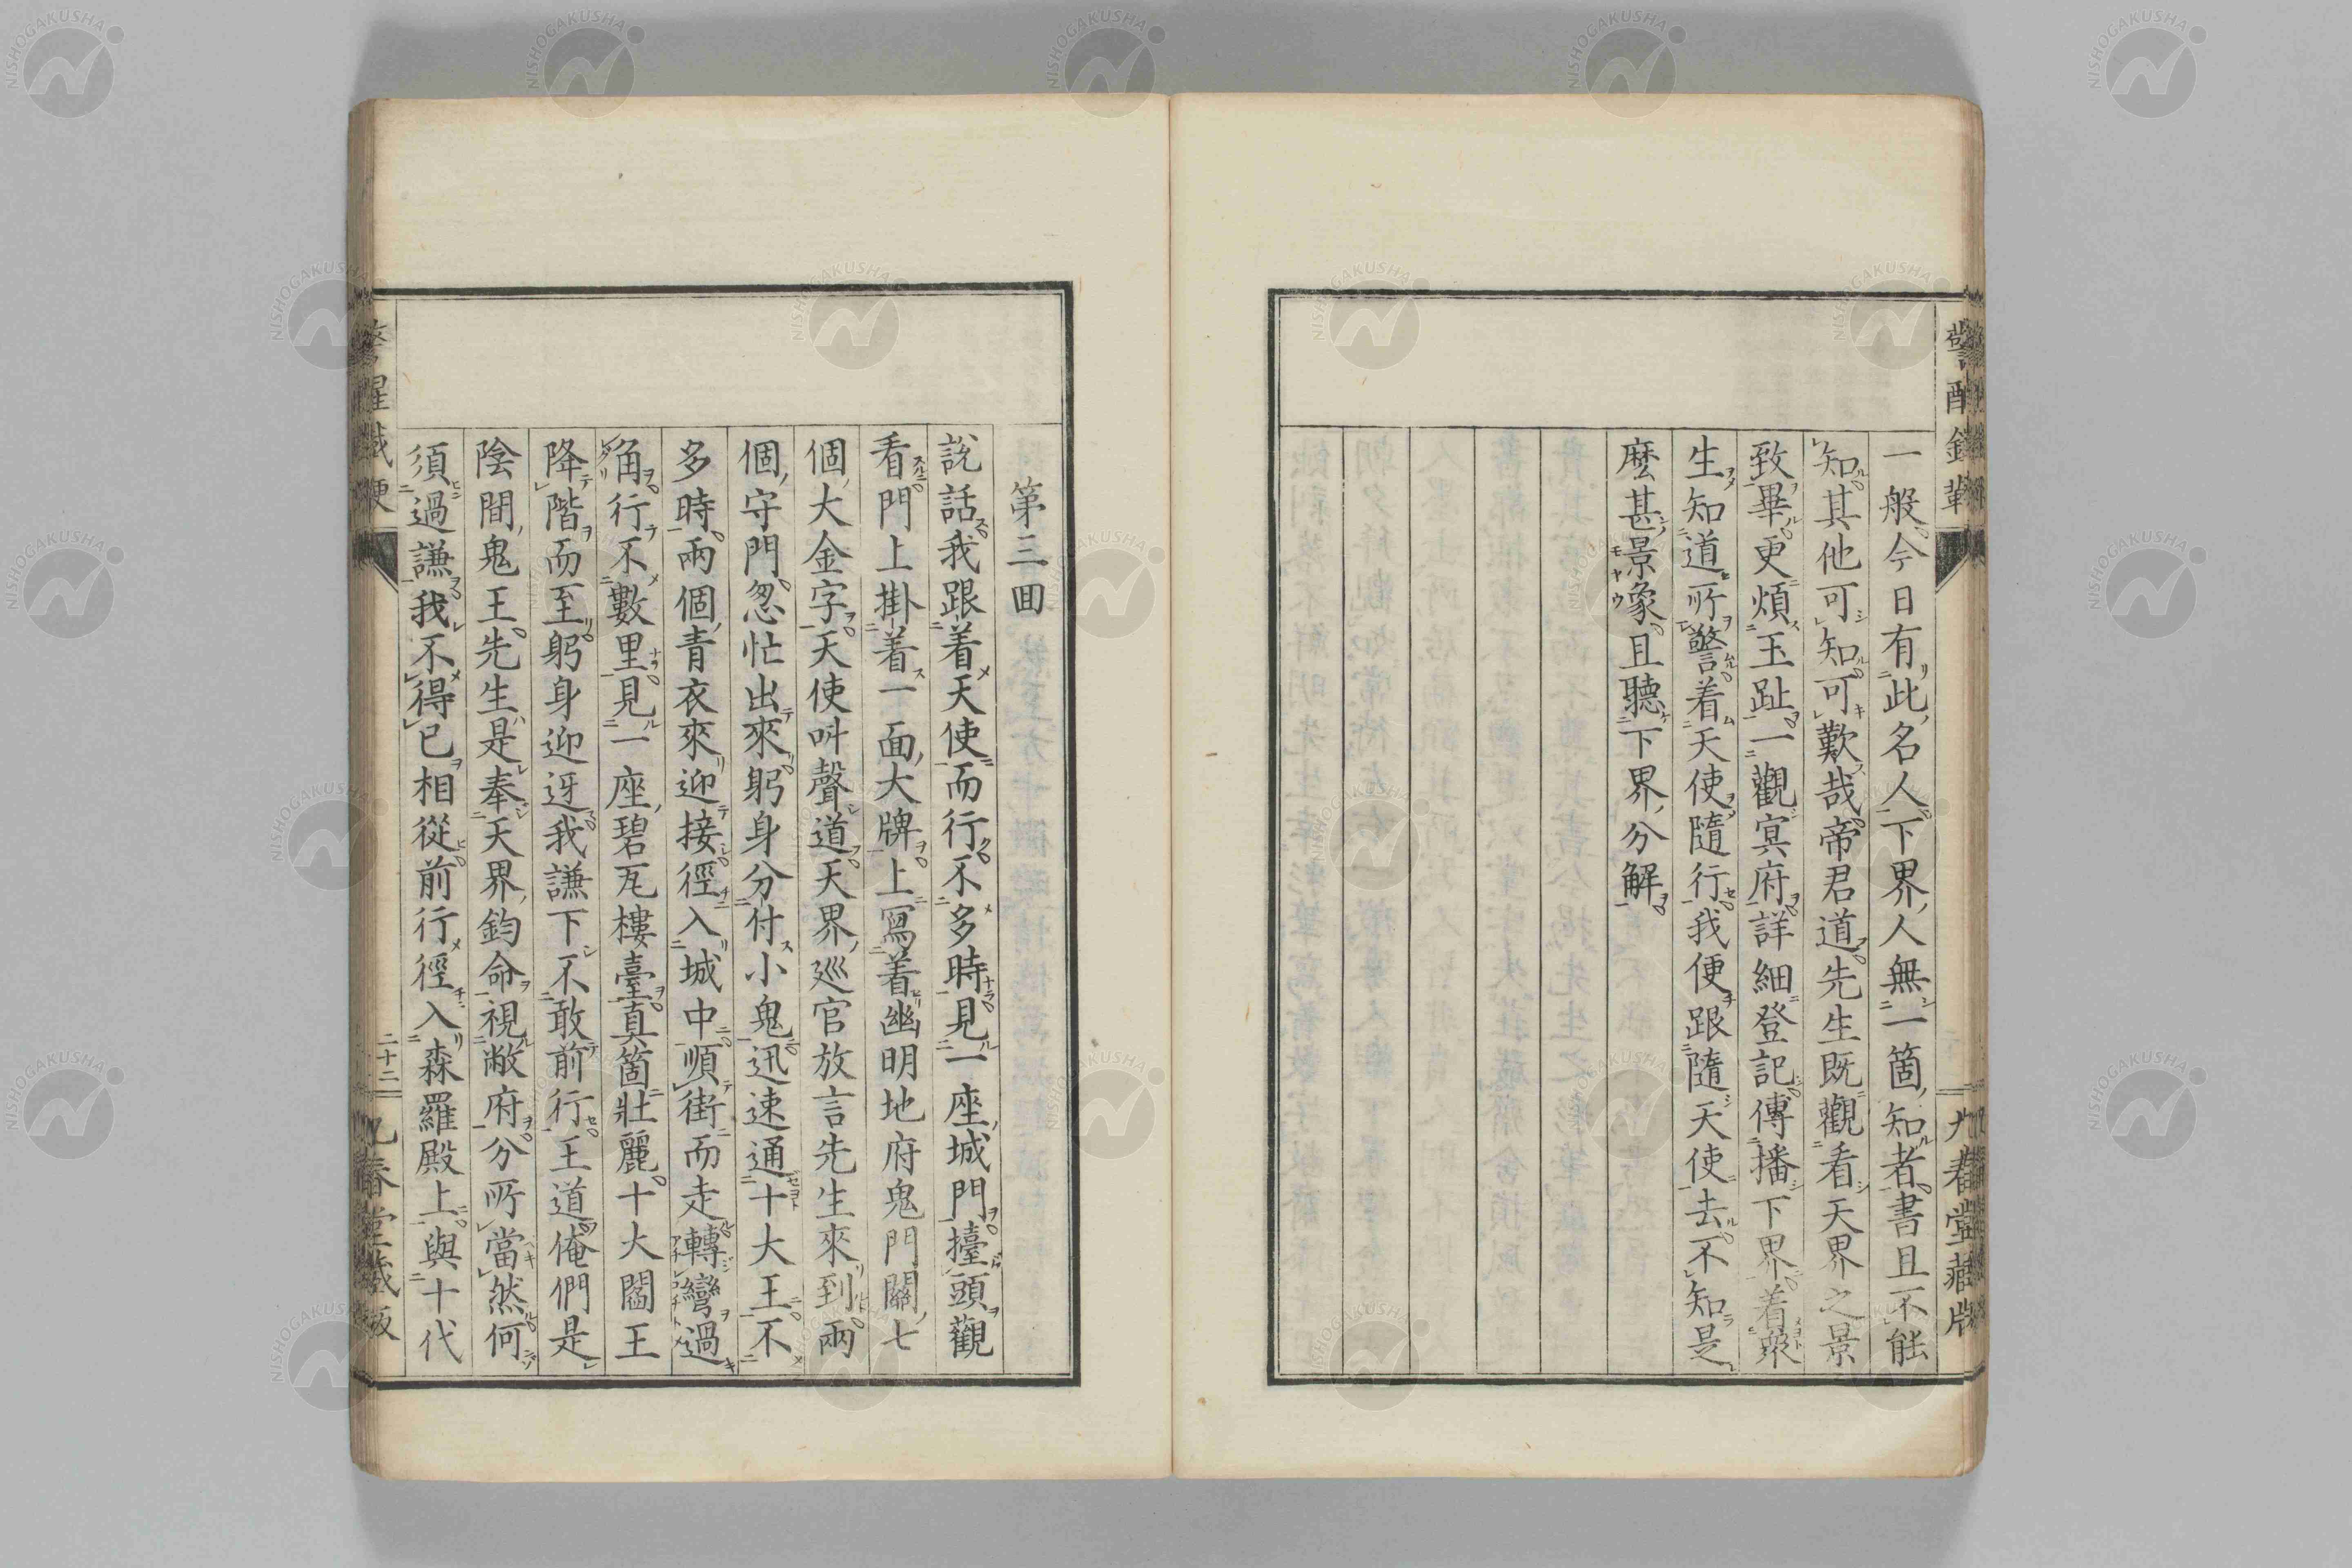 一般今日有此名人下界人無一箇知者書且不能
知其他可知可歎哉帝君道先生既觀看天界之景
致畢更煩玉趾一觀冥府詳細登記傳播下界着衆
生知道所警着天使隨行我便跟隨天使去不知是
麼甚景象且聽下界分解
九春堂藏版
第三回
說話我跟着天使而行不多時見一座城門擡頭觀
看門上掛着一面大牌上寫着幽明地府鬼門關七
個大金字天使呌聲道天界巡官放言先生來到兩
個守門忽忙出來躬身分付小鬼迅速通十大王不
多時兩個青衣來迎接徑入城中順街而走轉彎過
角行不數里見一座碧瓦樓臺真箇壯麗十大閻王
降階而至躬身迎迓我謙下不敢前行王道俺們是
陰間鬼王先生是奉天界鈞命視敝府分所當然何
須過謙我不得已相從前行徑入森羅殿上與十代
二十二
NISHOGAKUSHA